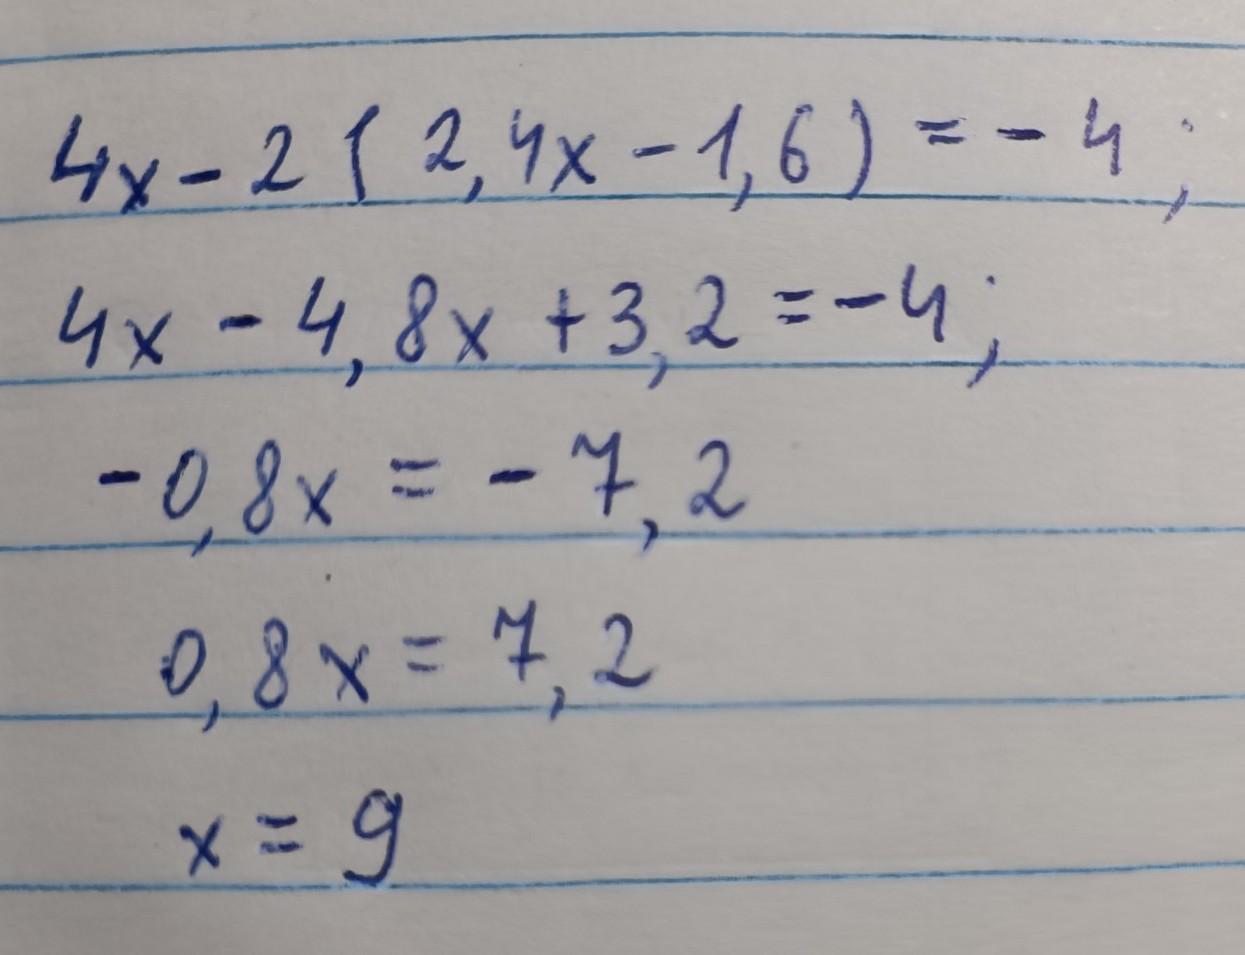 4x - 2 ( 2,4x - 1,6 ) = - 4 ;
4x - 4,8x + 3,2 = - 4 ;
- 0,8x = - 7,2
0,8x = 7,2
x = 9